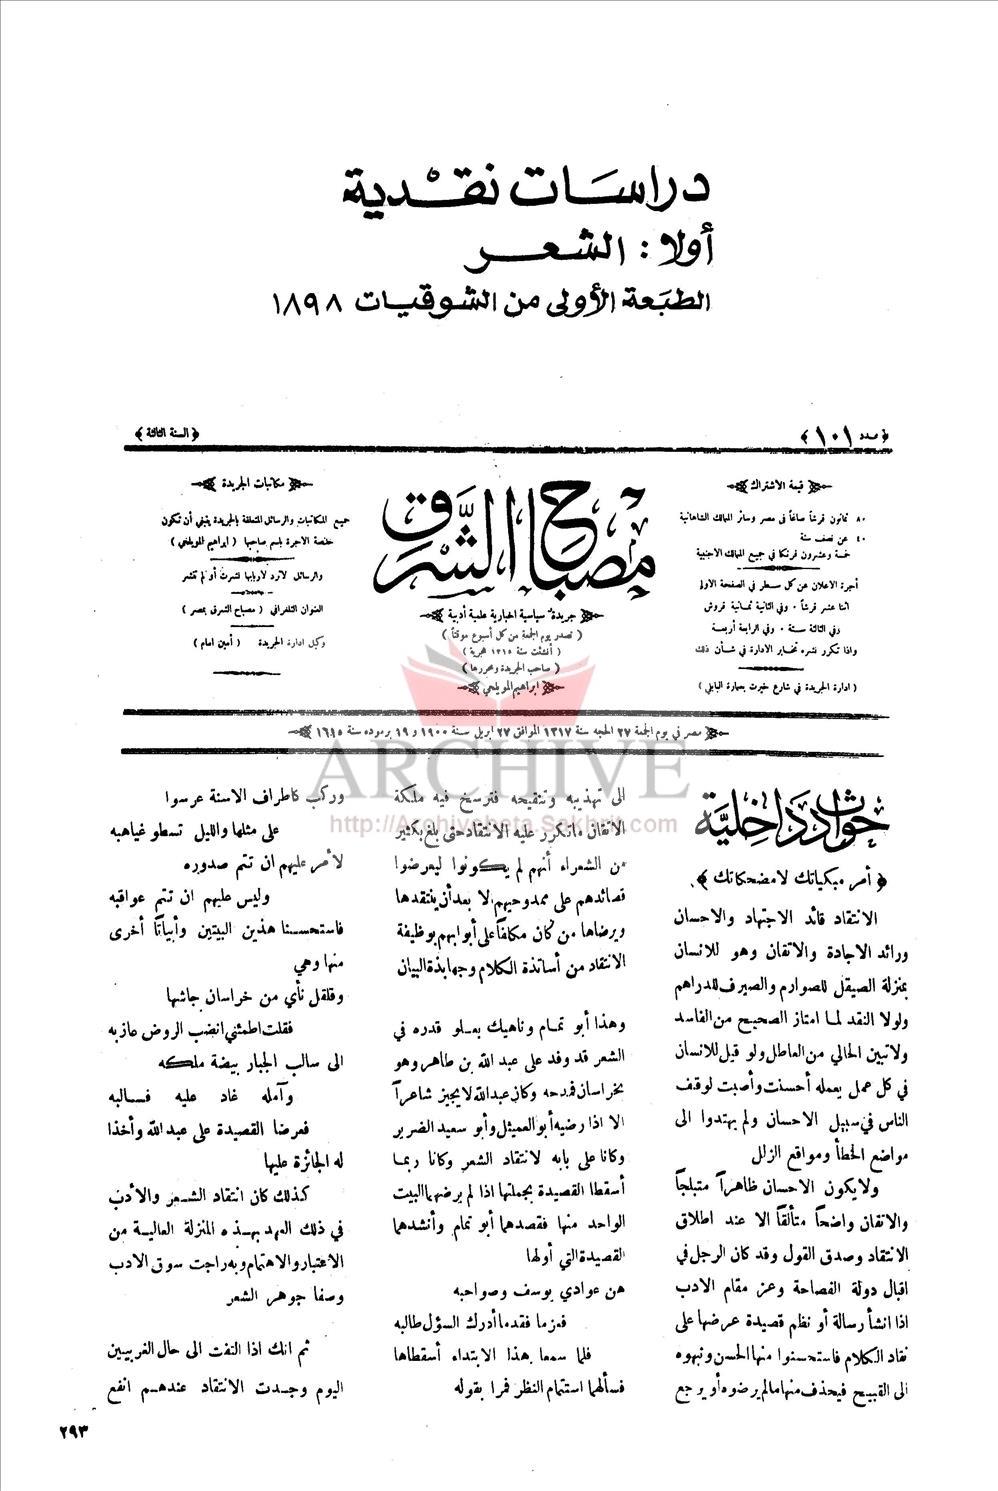 دراسات نقدية
أولا : الشعر
الطبعة الأولى من الشوقيات ١٨٩٨
﴿ عدد ١٠١ ﴾
﴿ السنة الثالثة ﴾
قيمة الاشتراك
٨٠ ثمانون قرشاً صاغاً فى مصر وسائر الممالك الشاهانية
٤٠ عن نصف سنة
خمسة وعشرون فرنكا في جميع الممالك الاجنبية
أجرة الاعلان عن كل سطر في الصفحة الاولى
اثنا عشر قرشاً ٠ وفي الثانية ثمانية قروش
وفي الثالثة ستة ٠ وفي الرابعة أربعة
واذا تكرر نشره تخابر الادارة في شأن ذلك
( ادارة الجريدة في شارع خيرت بعمارة البابلي )
مصباح الشرق
جريدة سياسية اخبارية علمية أدبية
( تصدر يوم الجمعة من كل أسبوع موقتاً )
( أنشئت سنة ١٣١٥ هجرية )
( صاحب الجريدة ومحررها )
ابراهيم المويلحي
مكاتبات الجريدة
جميع المكاتبات والرسائل المتعلقة بالجريدة ينبغي أن تكون
خالصة الاجرة باسم صاحبها ( ابراهيم المويلحي )
والرسائل لاترد لاربابها نشرت أو لم تنشر
العنوان التلغرافي ( مصباح الشرق بمصر )
وكيل ادارة الجريدة ( أمين امام )
مصر في يوم الجمعة ٢٧ الحجه سنة ١٣١٧ الموافق ٢٧ ابريل سنة ١٩٠٠ و ١٩ برموده سنة ١٦١٥
ARCHIVE
http://Archivebeta.Sakhrit.com
حوادث داخلية
﴿ أمر مبكياتك لا مضحكاتك ﴾
الانتقاد قائد الاجتهاد والاحسان
ورائد الاجادة والاتقان وهو للانسان
بمنزلة الصيقل للصوارم والصيرف للدراهم
ولولا النقد لما امتاز الصحيح من الفاسد
ولاتبين الحالي من العاطل ولو قيل للانسان
في كل عمل يعمله أحسنت وأصبت لوقف
الناس في سبيل الاحسان ولم يهتدوا الى
مواضع الخطأ ومواقع الزلل
ولايكون الاحسان ظاهراً متبلجاً
والاتقان واضحاً متألقاً الا عند اطلاق
الانتقاد وصدق القول وقد كان الرجل في
اقبال دولة الفصاحة وعز مقام الادب
اذا انشأ رسالة أو نظم قصيدة عرضها على
نقاد الكلام فاستحسنوا منها الحسن ونبهوه
الى القبيح فيحذف منها مالم يرضوه أو يرجع
الى تهذيبه وتنقيحه فترسخ فيه ملكة
الاتقان ماتكرر عليه الانتقاد حتى بلغ بكثير
من الشعراء أنهم لم يكونوا ليعرضوا
قصائدهم على ممدوحيهم الا بعد أن ينتقدها
ويرضاها من كان مكلفاً على أبوابهم بوظيفة
الانتقاد من أساتذة الكلام وجهابذة البيان
وهذا أبو تمام وناهيك بعلو قدره في
الشعر قد وفد على عبد الله بن طاهر وهو
بخراسان فمدحه وكان عبد الله لا يجيز شاعراً
الا اذا رضيه أبو العميثل وأبو سعيد الضرير
وكانا على بابه لانتقاد الشعر وكانا ربما
أسقطا القصيدة بجملتها اذا لم يرضهما البيت
الواحد منها فقصدهما أبو تمام وأنشدهما
القصيدة التي أولها
هن عوادي يوسف وصواحبه
فعزما فقدما أدرك السؤل طالبه
فلما سمعا بهذا الابتداء أسقطاها
فسألهما استتمام النظر فمرا بقوله
وركب كاطراف الاسنة عرسوا
على مثلها والليل تسطو غياهبه
لأمر عليهم ان تتم صدوره
وليس عليهم ان تتم عواقبه
فاستحسنا هذين البيتين وأبياتاً أخرى
منها وهي
وقلقل نأي من خراسان جاشها
فقلت اطمئني انضب الروض عازبه
الى سالب الجبار بيضة ملكه
وآمله غاد عليه فسالبه
فعرضا القصيدة على عبد الله وأخذا
له الجائزة عليها
كذلك كان انتقاد الشعر والأدب
في ذلك العهد بهذه المنزلة العالية من
الاعتبار والاهتمام وبه راجت سوق الادب
وصفا جوهر الشعر
ثم انك اذا التفت الى حال الغربيين
اليوم وجدت الانتقاد عندهم انفع
٢٩٣